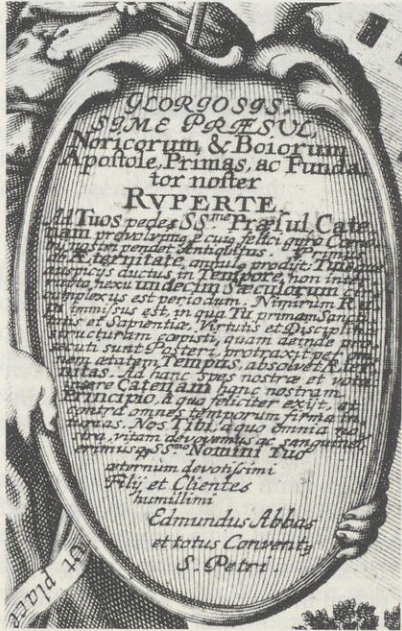 GLORIOSIS-
SIME PRÆSUL,
Noricorum, & Boiorum
Apostole, Primas, ac Funda-
tor noſter
RVPERTE
Ad Tuos pedes SS.me Præſul Cate-
nam provolvimus e cuius felici gyro Coeno-
bij noſtri pendet Antiquitas. Primus
ab Æternitate, annulus prodijt; Tuisque
auspicijs ductus in Tempore, non inter-
rupto nexu undecim Sæculorum cõ-
plexus est periodum. Nimirum R
immiſsus est, in qua Tu primam Sancti-
tatis et Sapientiæ, Virtutis et Disciplinæ
structuram cœpisti, quam deinde pro-
secuti sunt Posteri, protraxit per om-
nem ætatem Tempus, absolvet Æter-
nitas. Ad hanc spes nostræ et vota
Catenam hanc nostram
Principio, a quo feliciter exijt, et
contra omnes temporum firma in-
iurias. Nos Tibi, a quo omnia no-
stra, vitam devovemus ac sanguinem
erimusq; SS.mo Nomini Tuo
æternum devotiſsimi
Filij et Clientes
humillimi
Edmundus Abbas
et totus Convent9
S. Petri.
Ut place